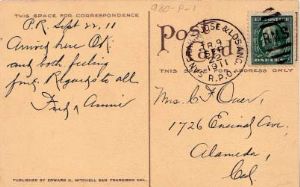 980-P-1
THIS SPACE FOR CORRESPONDENCE
P.R. Sept 22, 10
Arrived here OK
and both feeling
fine. Regards to all
Fred & Annie
Post Card
SAN & LOS ANG.
TR 9
SEP
22
1910
R.P.O.
THIS SPACE FOR ADDRESS ONLY
Mrs. C F
1726 Encinal Ave.
Alameda,
Cal
PUBLISHED BY EDWARD H. MITCHELL SAN FRANCISCO CAL.